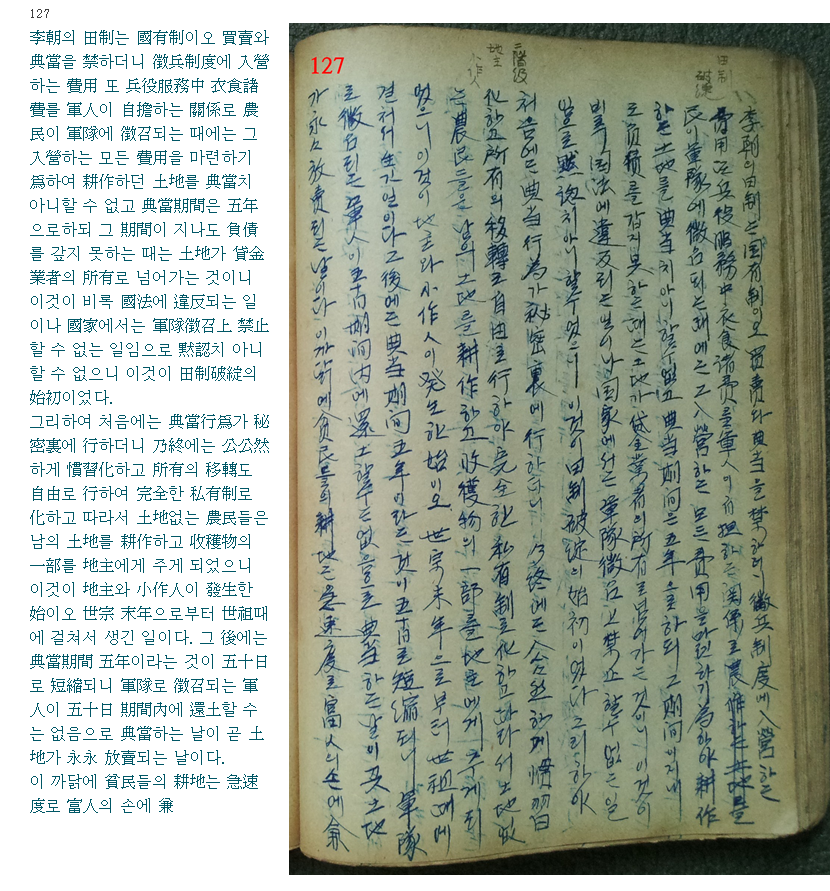 127
李朝의 田制는 國有制이오 買賣와
典當을 禁하더니 徵兵制度에 入營
하는 費用 또 兵役服務中 衣食諸
費를 軍人이 自擔하는 關係로 農
民이 軍隊에 徵召되는 때에는 그
入營하는 모든 費用을 마련하기
爲하여 耕作하던 土地를 典當치
아니할 수 없고 典當期間은 五年
으로하되 그 期間이 지나도 負債
를 갚지 못하는 때는 土地가 貸金
業者의 所有로 넘어가는 것이니
이것이 비록 國法에 違反되는 일
이나 國家에서는 軍隊徵召上 禁止
할 수 없는 일임으로 黙認치 아니
할 수 없으니 이것이 田制破綻의
始初이었다.
그리하여 처음에는 典當行爲가 秘
密裏에 行하더니 乃終에는 公公然
하게 慣習化하고 所有의 移轉도
自由로 行하여 完全한 私有制로
化하고 따라서 土地없는 農民들은
남의 土地를 耕作하고 收穫物의
一部를 地主에게 주게 되었으니
이것이 地主와 小作人이 發生한
始이오 世宗 末年으로부터 世祖때
에 걸쳐서 생긴 일이다. 그 後에는
典當期間 五年이라는 것이 五十日
로 短縮되니 軍隊로 徵召되는 軍
人이 五十日 期間內에 還土할 수
는 없음으로 典當하는 날이 곧 土
地가 永永 放賣되는 날이다.
이 까닭에 貧民들의 耕地는 急速
度로 富人의 손에 兼
127
田制
破綻
三階級
地主
小作
李朝의 田制는 國有制이오 買賣와 典當을 禁하더니 徵兵制度에 入營하는
費用 또 兵役服務中 衣食諸費를 軍人이 自担하는 関係로 農
民이 軍隊에 徵召되는 때에는 그 入營하는 모든 費用을 마련하기 爲하야 耕作
하는 土地를 典當치 아니할 수 없고 典當期間은 五年으로 하되 그 期間이 지내
도 負債를 갑지 못하는 때는 土地가 貸金業者의 所有로 넘어가는 것이니 이것이
비록 國法에 違反되는 일이나 國家에서는 軍隊徵召上 禁止할 수 없는 일
임으로 黙認치 아니할 수 없으니 이것이 田制破綻의 始初이였다 그리하야
처음에는 典當行為가 秘密裏에 行하더니 乃終에는 公公然하게 慣習
化하고 所有의 移轉도 自由로 行하야 完全한 私有制로 化하고 따라서 土地없
는 農民들은 남의 土地를 耕作하고 收獲物의 一部를 地主에게 주게 되
였으니 이것이 地主와 小作人이 發生한 始이오 世宗末年으로부터 世祖때에
걸처서 생긴 일이다 그 後에는 典當期間 五年이라는 것이 五十日로 短縮되니 軍隊
로 徵召되는 軍人이 五十日 期間內에 還土할 수는 없음으로 典當하는 날이 곳 土地
가 永永 放賣되는 날이다 이 까닭에 貧民들의 耕地는 急速度로 富人의 손에 兼